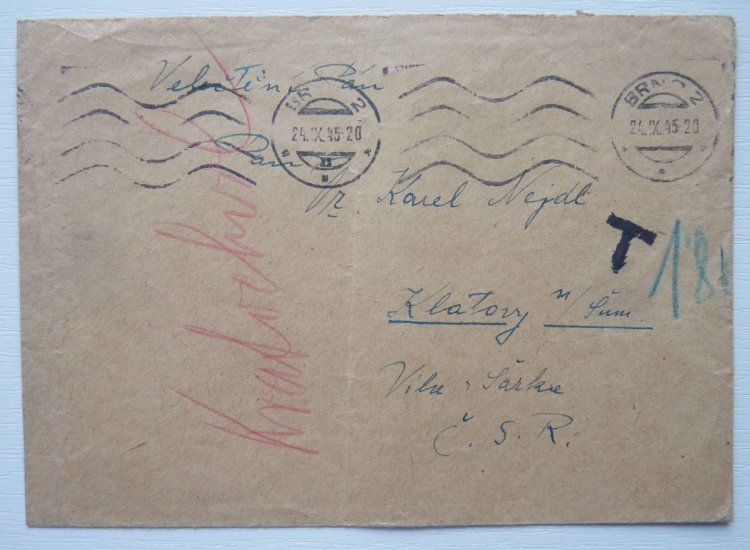 Veluctěný Pán
BRNO 2
24.IX.45-20
BRNO 2
24.IX.45-20
Pan
Dr. Karel Nejdl
T
1'80
Klatovy n/Šum.
Vila "Šárka
Č. S. R.
Kratochvíl